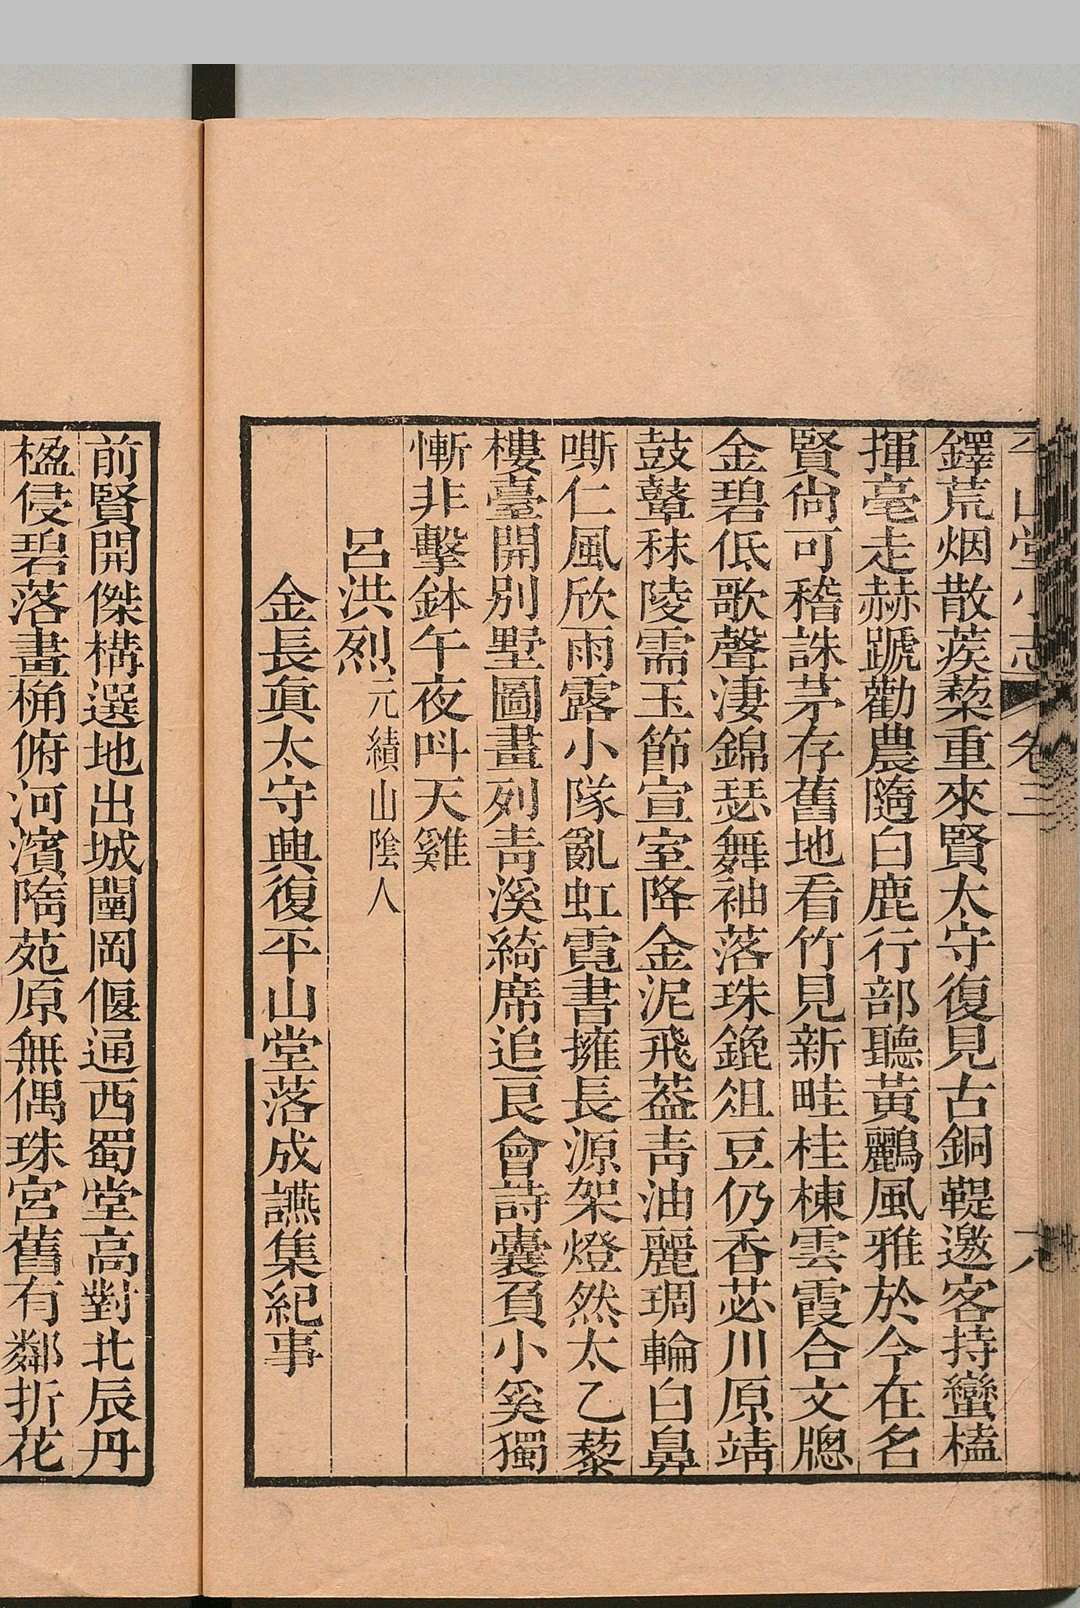 平山堂小志 卷三
鐸荒烟散蒺藜重來賢太守復見古銅鞮邀客持蠻榼
揮毫走赫蹏勸農隨白鹿行部聽黃鸝風雅於今在名
賢尙可稽誅茅存舊地看竹見新畦桂棟雲霞合文牕
金碧低歌聲淒錦瑟舞袖落珠鎞俎豆仍香苾川原靖
鼓鼙秣陵需玉節宣室降金泥飛蓋靑油麗琱輪白鼻
嘶仁風欣雨露小隊亂虹霓書擁長源架燈然太乙藜
樓臺開別墅圖畫列靑溪綺席追良會詩囊負小奚獨
慚非擊鉢午夜叫天雞
呂洪烈元績山陰人
金長眞太守興復平山堂落成讌集紀事
前賢開傑構選地出城闉岡偃通西蜀堂高對北辰丹
楹侵碧落畫桷俯河濱隋苑原無偶珠宮舊有鄰折花